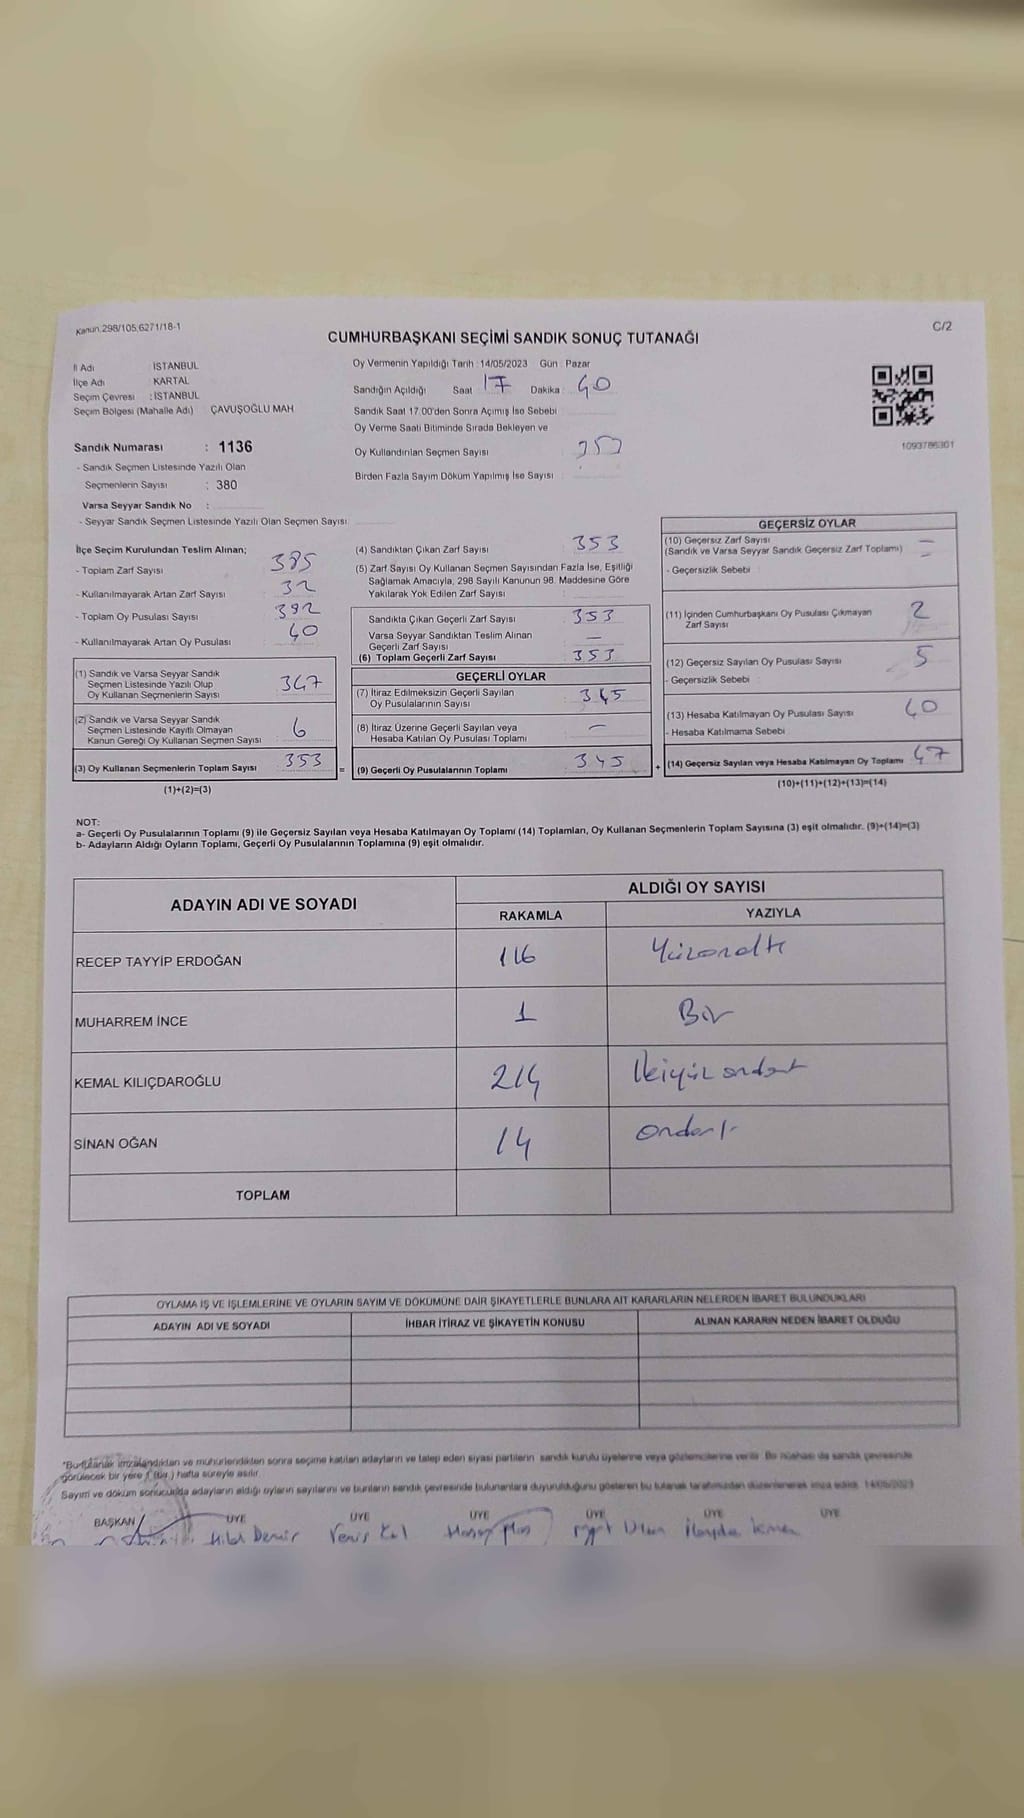 Kanun.298/105,6271/18-1
C/2
CUMHURBAŞKANI SEÇİMİ SANDIK SONUÇ TUTANAĞI
İl Adı İSTANBUL
İlçe Adı KARTAL
Seçim Çevresi : İSTANBUL
Seçim Bölgesi (Mahalle Adı) ÇAVUŞOĞLU MAH
Sandık Numarası : 1136
- Sandık Seçmen Listesinde Yazılı Olan
Seçmenlerin Sayısı : 380
Varsa Seyyar Sandık No :
- Seyyar Sandık Seçmen Listesinde Yazılı Olan Seçmen Sayısı
Oy Vermenin Yapıldığı Tarih : 14/05/2023 Gün : Pazar
Sandığın Açıldığı Saat 17 Dakika : 40
Sandık Saat 17.00'den Sonra Açımış İse Sebebi
Oy Verme Saati Bitiminde Sırada Bekleyen ve
Oy Kullandırılan Seçmen Sayısı
Birden Fazla Sayım Döküm Yapılmış İse Sayısı
1093786301
İlçe Seçim Kurulundan Teslim Alınan;
- Toplam Zarf Sayısı 385
- Kullanılmayarak Artan Zarf Sayısı 32
- Toplam Oy Pusulası Sayısı 392
- Kullanılmayarak Artan Oy Pusulası 40
(1) Sandık ve Varsa Seyyar Sandık
Seçmen Listesinde Yazılı Olup
Oy Kullanan Seçmenlerin Sayısı 347
(2) Sandık ve Varsa Seyyar Sandık
Seçmen Listesinde Kayıtlı Olmayan
Kanun Gereği Oy Kullanan Seçmen Sayısı 6
(3) Oy Kullanan Seçmenlerin Toplam Sayısı 353
(1)+(2)=(3)
(4) Sandıktan Çıkan Zarf Sayısı 353
(5) Zarf Sayısı Oy Kullanan Seçmen Sayısından Fazla İse, Eşitliği
Sağlamak Amacıyla, 298 Sayılı Kanunun 98. Maddesine Göre
Yakılarak Yok Edilen Zarf Sayısı
Sandıkta Çıkan Geçerli Zarf Sayısı 353
Varsa Seyyar Sandıktan Teslim Alınan
Geçerli Zarf Sayısı —
(6) Toplam Geçerli Zarf Sayısı 353
GEÇERLİ OYLAR
(7) İtiraz Edilmeksizin Geçerli Sayılan
Oy Pusulalarının Sayısı 345
(8) İtiraz Üzerine Geçerli Sayılan veya
Hesaba Katılan Oy Pusulası Toplamı —
= (9) Geçerli Oy Pusulalarının Toplamı 345
GEÇERSİZ OYLAR
(10) Geçersiz Zarf Sayısı
(Sandık ve Varsa Seyyar Sandık Geçersiz Zarf Toplamı) —
- Geçersizlik Sebebi
(11) İçinden Cumhurbaşkanı Oy Pusulası Çıkmayan
Zarf Sayısı 2
(12) Geçersiz Sayılan Oy Pusulası Sayısı 5
- Geçersizlik Sebebi
(13) Hesaba Katılmayan Oy Pusulası Sayısı 40
- Hesaba Katılmama Sebebi
+ (14) Geçersiz Sayılan veya Hesaba Katılmayan Oy Toplamı 47
(10)+(11)+(12)+(13)=(14)
NOT:
a- Geçerli Oy Pusulalarının Toplamı (9) ile Geçersiz Sayılan veya Hesaba Katılmayan Oy Toplamı (14) Toplamları, Oy Kullanan Seçmenlerin Toplam Sayısına (3) eşit olmalıdır. (9)+(14)=(3)
b- Adayların Aldığı Oyların Toplamı, Geçerli Oy Pusulalarının Toplamına (9) eşit olmalıdır.
ADAYIN ADI VE SOYADI ALDIĞI OY SAYISI
RAKAMLA YAZIYLA
RECEP TAYYİP ERDOĞAN 116 Yüzonaltı
MUHARREM İNCE 1 Bir
KEMAL KILIÇDAROĞLU 214 İkiyüz ondört
SİNAN OĞAN 14 ondört
TOPLAM
OYLAMA İŞ VE İŞLEMLERİNE VE OYLARIN SAYIM VE DÖKÜMÜNE DAİR ŞİKAYETLERLE BUNLARA AİT KARARLARIN NELERDEN İBARET BULUNDUKLARI
ADAYIN ADI VE SOYADI İHBAR İTİRAZ VE ŞİKAYETİN KONUSU ALINAN KARARIN NEDEN İBARET OLDUĞU
*Bu tutanak imzalandıktan ve mühürlendikten sonra seçime katılan adayların ve talep eden siyasi partilerin sandık kurulu üyelerine veya gözlemcilerine verilir. Bir nüshası da sandık çevresinde
görülecek bir yere 1 (bir) hafta süreyle asılır.
Sayım ve döküm sonucunda adayların aldığı oyların sayılarını ve bunların sandık çevresinde bulunanlara duyurulduğunu gösteren bu tutanak tarafımızdan düzenlenerek imza edildi. 14/05/2023
BAŞKAN ÜYE ÜYE ÜYE ÜYE ÜYE ÜYE